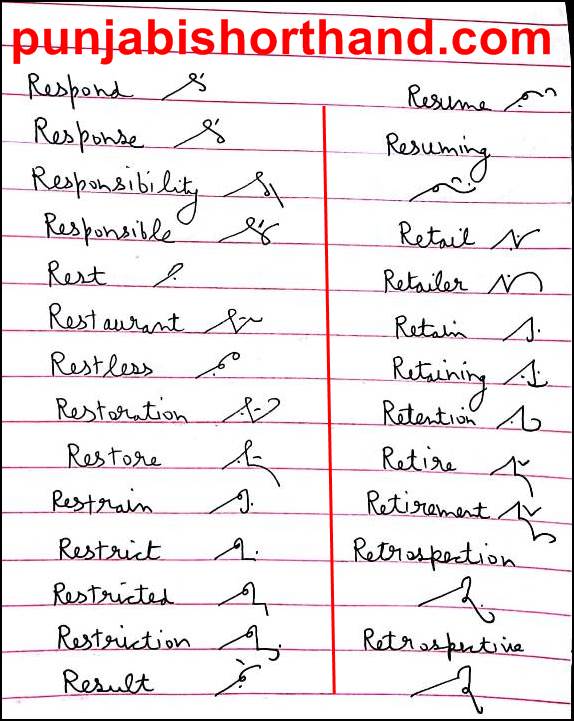 punjabishorthand.com
Respond
Response
Responsibility
Responsible
Rest
Restaurant
Restless
Restoration
Restore
Restrain
Restrict
Restricted
Restriction
Result
Resume
Resuming
Retail
Retailer
Retain
Retaining
Retention
Retire
Retirement
Retrospection
Retrospective